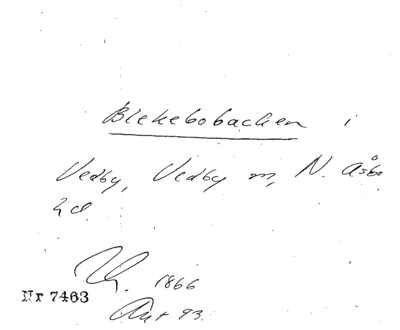 Blekebobacken i
Vedby, Vedby sn, N. Åsbo
hd.
1866
Nr 7463
93.